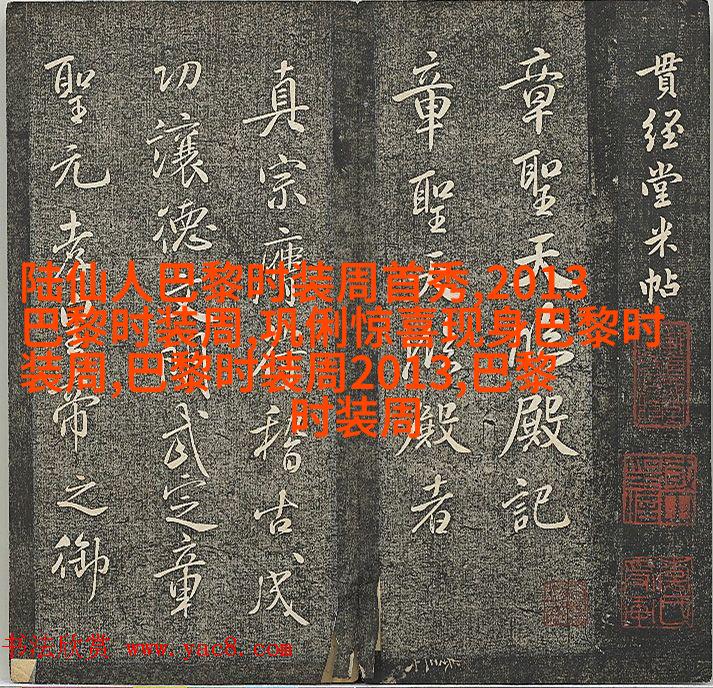 貫經堂米帖
章聖天臨殿記
章聖天臨殿者
真宗膺稽古成
功讓德武定章
聖元孝皇帝之御
陆仙人巴黎时装周首秀,2013
巴黎时装周,巩俐惊喜现身巴黎时
装周,巴黎时装周2013,巴黎
时装周
书法欣赏 www.yac8.com